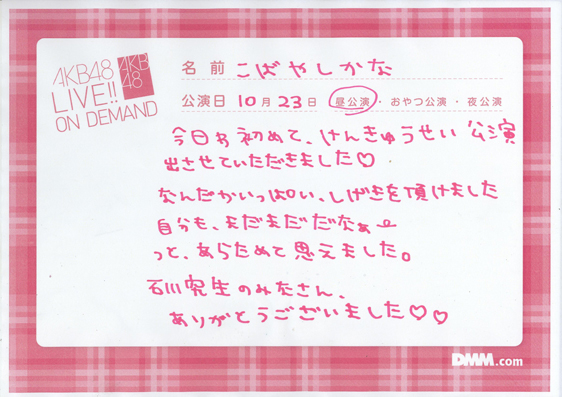 AKB48
LIVE!!
ON DEMAND
AKB
48
名前 こばやしかな
公演日 10月23日 昼公演・おやつ公演・夜公演
今日わ初めて、けんきゅうせい公演
出させていただきました♡
なんだかいっぱい、しげきを頂けました
自分も、まだまだだなぁ
っと、あらためて思えました。
研究生のみなさん、
ありがとうございました♡♡
DMM.com